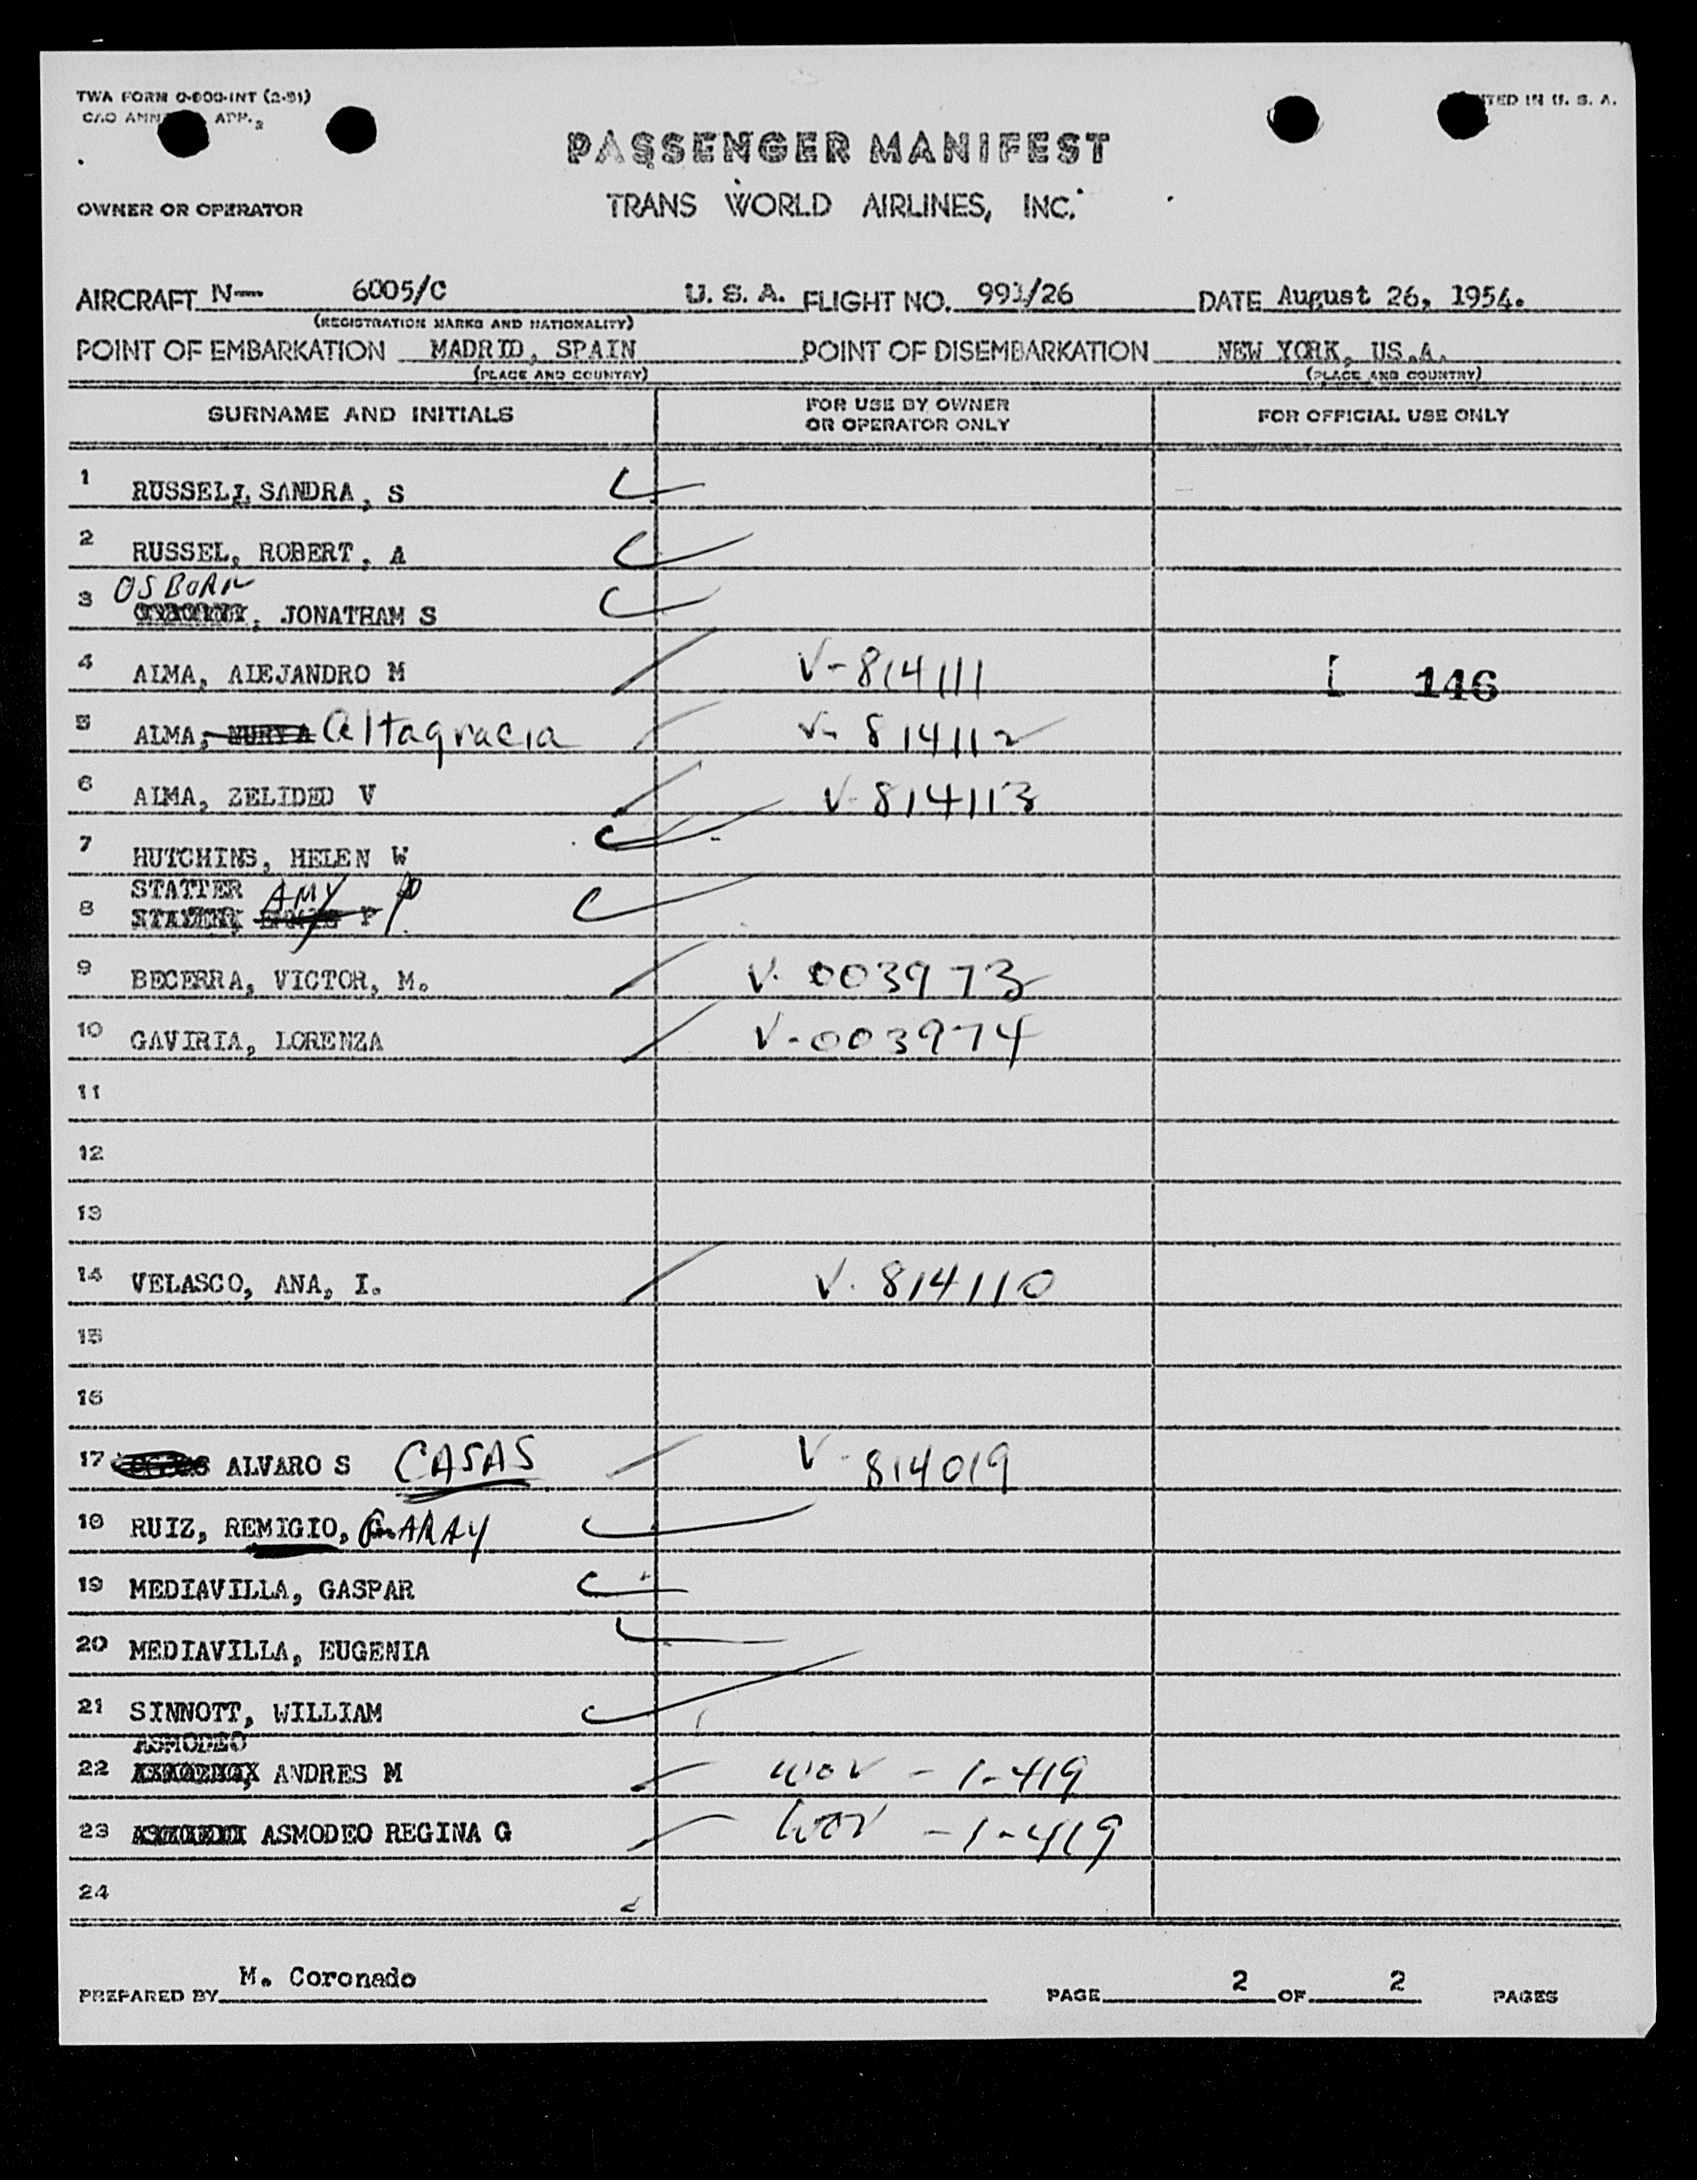 TWA FORM O-800-INT (2-51)
CAO ANN APP. 2
TED IN U. S. A.
PASSENGER MANIFEST
OWNER OR OPERATOR
TRANS WORLD AIRLINES, INC.
AIRCRAFT N— 6005/C U. S. A. FLIGHT NO. 991/26 DATE August 26, 1954.
(REGISTRATION MARKS AND NATIONALITY)
POINT OF EMBARKATION MADRID, SPAIN POINT OF DISEMBARKATION NEW YORK, US.A.
(PLACE AND COUNTRY) (PLACE AND COUNTRY)
SURNAME AND INITIALS FOR USE BY OWNER OR OPERATOR ONLY FOR OFFICIAL USE ONLY
1 RUSSEL, SANDRA, S
2 RUSSEL, ROBERT, A
OSBORN
3 , JONATHAM S
4 ALMA, ALEJANDRO M V-814111 146
5 ALMA, Altagracia V- 814112
6 ALMA, ZELIDED V V-814113
7 HUTCHINS, HELEN W
STATTER AMY P
8
9 BECERRA, VICTOR, M. V. 003973
10 GAVIRIA, LORENZA V-003974
11
12
13
14 VELASCO, ANA, I. V. 814110
15
16
17 ALVARO S CASAS V-814019
18 RUIZ, REMIGIO, GARAY
19 MEDIAVILLA, GASPAR
20 MEDIAVILLA, EUGENIA
21 SINNOTT, WILLIAM
ASMODEO
22 ANDRES M WOV - 1-419
23 ASMODEO REGINA G WOV - 1-419
24
PREPARED BY M. Coronado PAGE 2 OF 2 PAGES